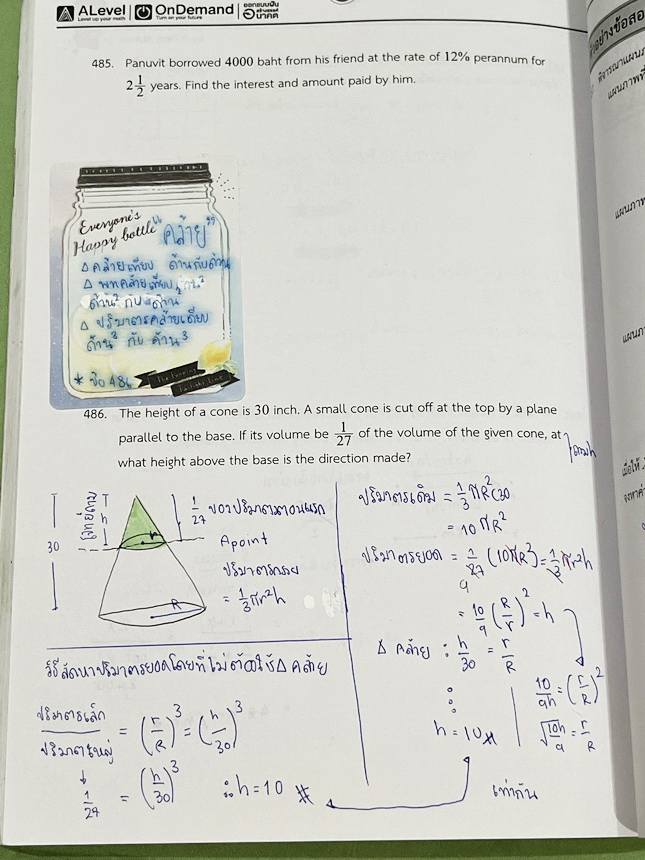 ALevel Level up your math OnDemand Turn on your future ออกแบบฝัน สร้างสรรค์ อนาคต
485. Panuvit borrowed 4000 baht from his friend at the rate of 12% perannum for
2 1/2 years. Find the interest and amount paid by him.
Everyone's
Happy bottle
"คล้าย"
Δ คล้ายเทียบ ด้านกับด้าน
Δ พทคล้ายเทียบ
ด้าน² กับ ด้าน²
Δ ปริมาตรคล้ายเทียบ
ด้าน³ กับ ด้าน³
* ข้อ 486
486. The height of a cone is 30 inch. A small cone is cut off at the top by a plane
parallel to the base. If its volume be 1/27 of the volume of the given cone, at
what height above the base is the direction made?
ถามh
30
h
r
R
1/27 ของปริมาตรตอนแรก
Apoint
ปริมาตรกรวย
= 1/3 πr²h
ปริมาตรเดิม = 1/3 πR²(30
= 10πR²
ปริมาตรยอด = 1/27 (10πR²) = 1/3 πr²h
9
= 10/9 (R/r)² = h
Δ คล้าย : h/30 = r/R
h = 10
10/9h = (r/R)²
√10h/9 = r/R
เท่ากัน
วิธีลัดหาปริมาตรยอดโดยที่ไม่ต้องใช้ Δ คล้าย
ปริมาตรเล็ก/ปริมาตรใหญ่ = (r/R)³ = (h/30)³
1/27 = (h/30)³ ∴ h = 10